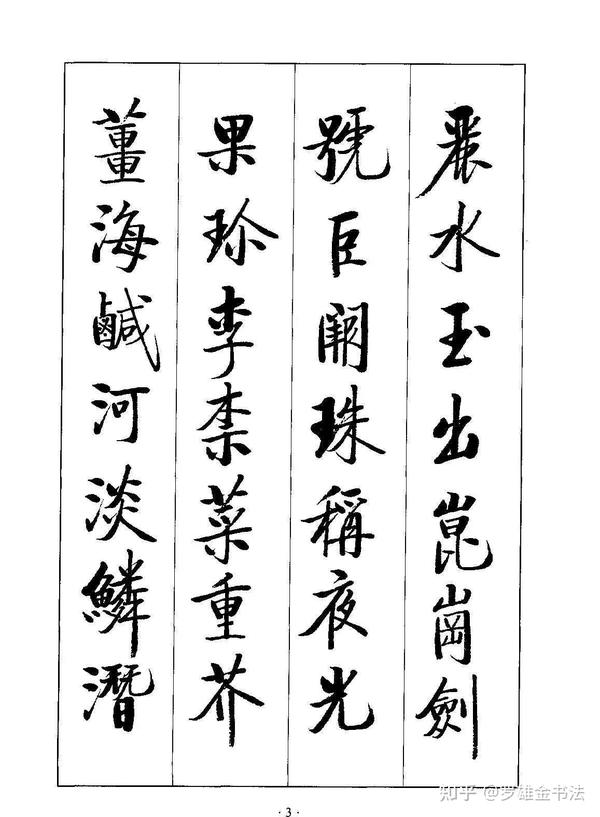 麗水玉出崑崗劍
號巨闕珠稱夜光
果珍李柰菜重芥
薑海鹹河淡鱗潛
· 3 ·
知乎 @罗雄金书法